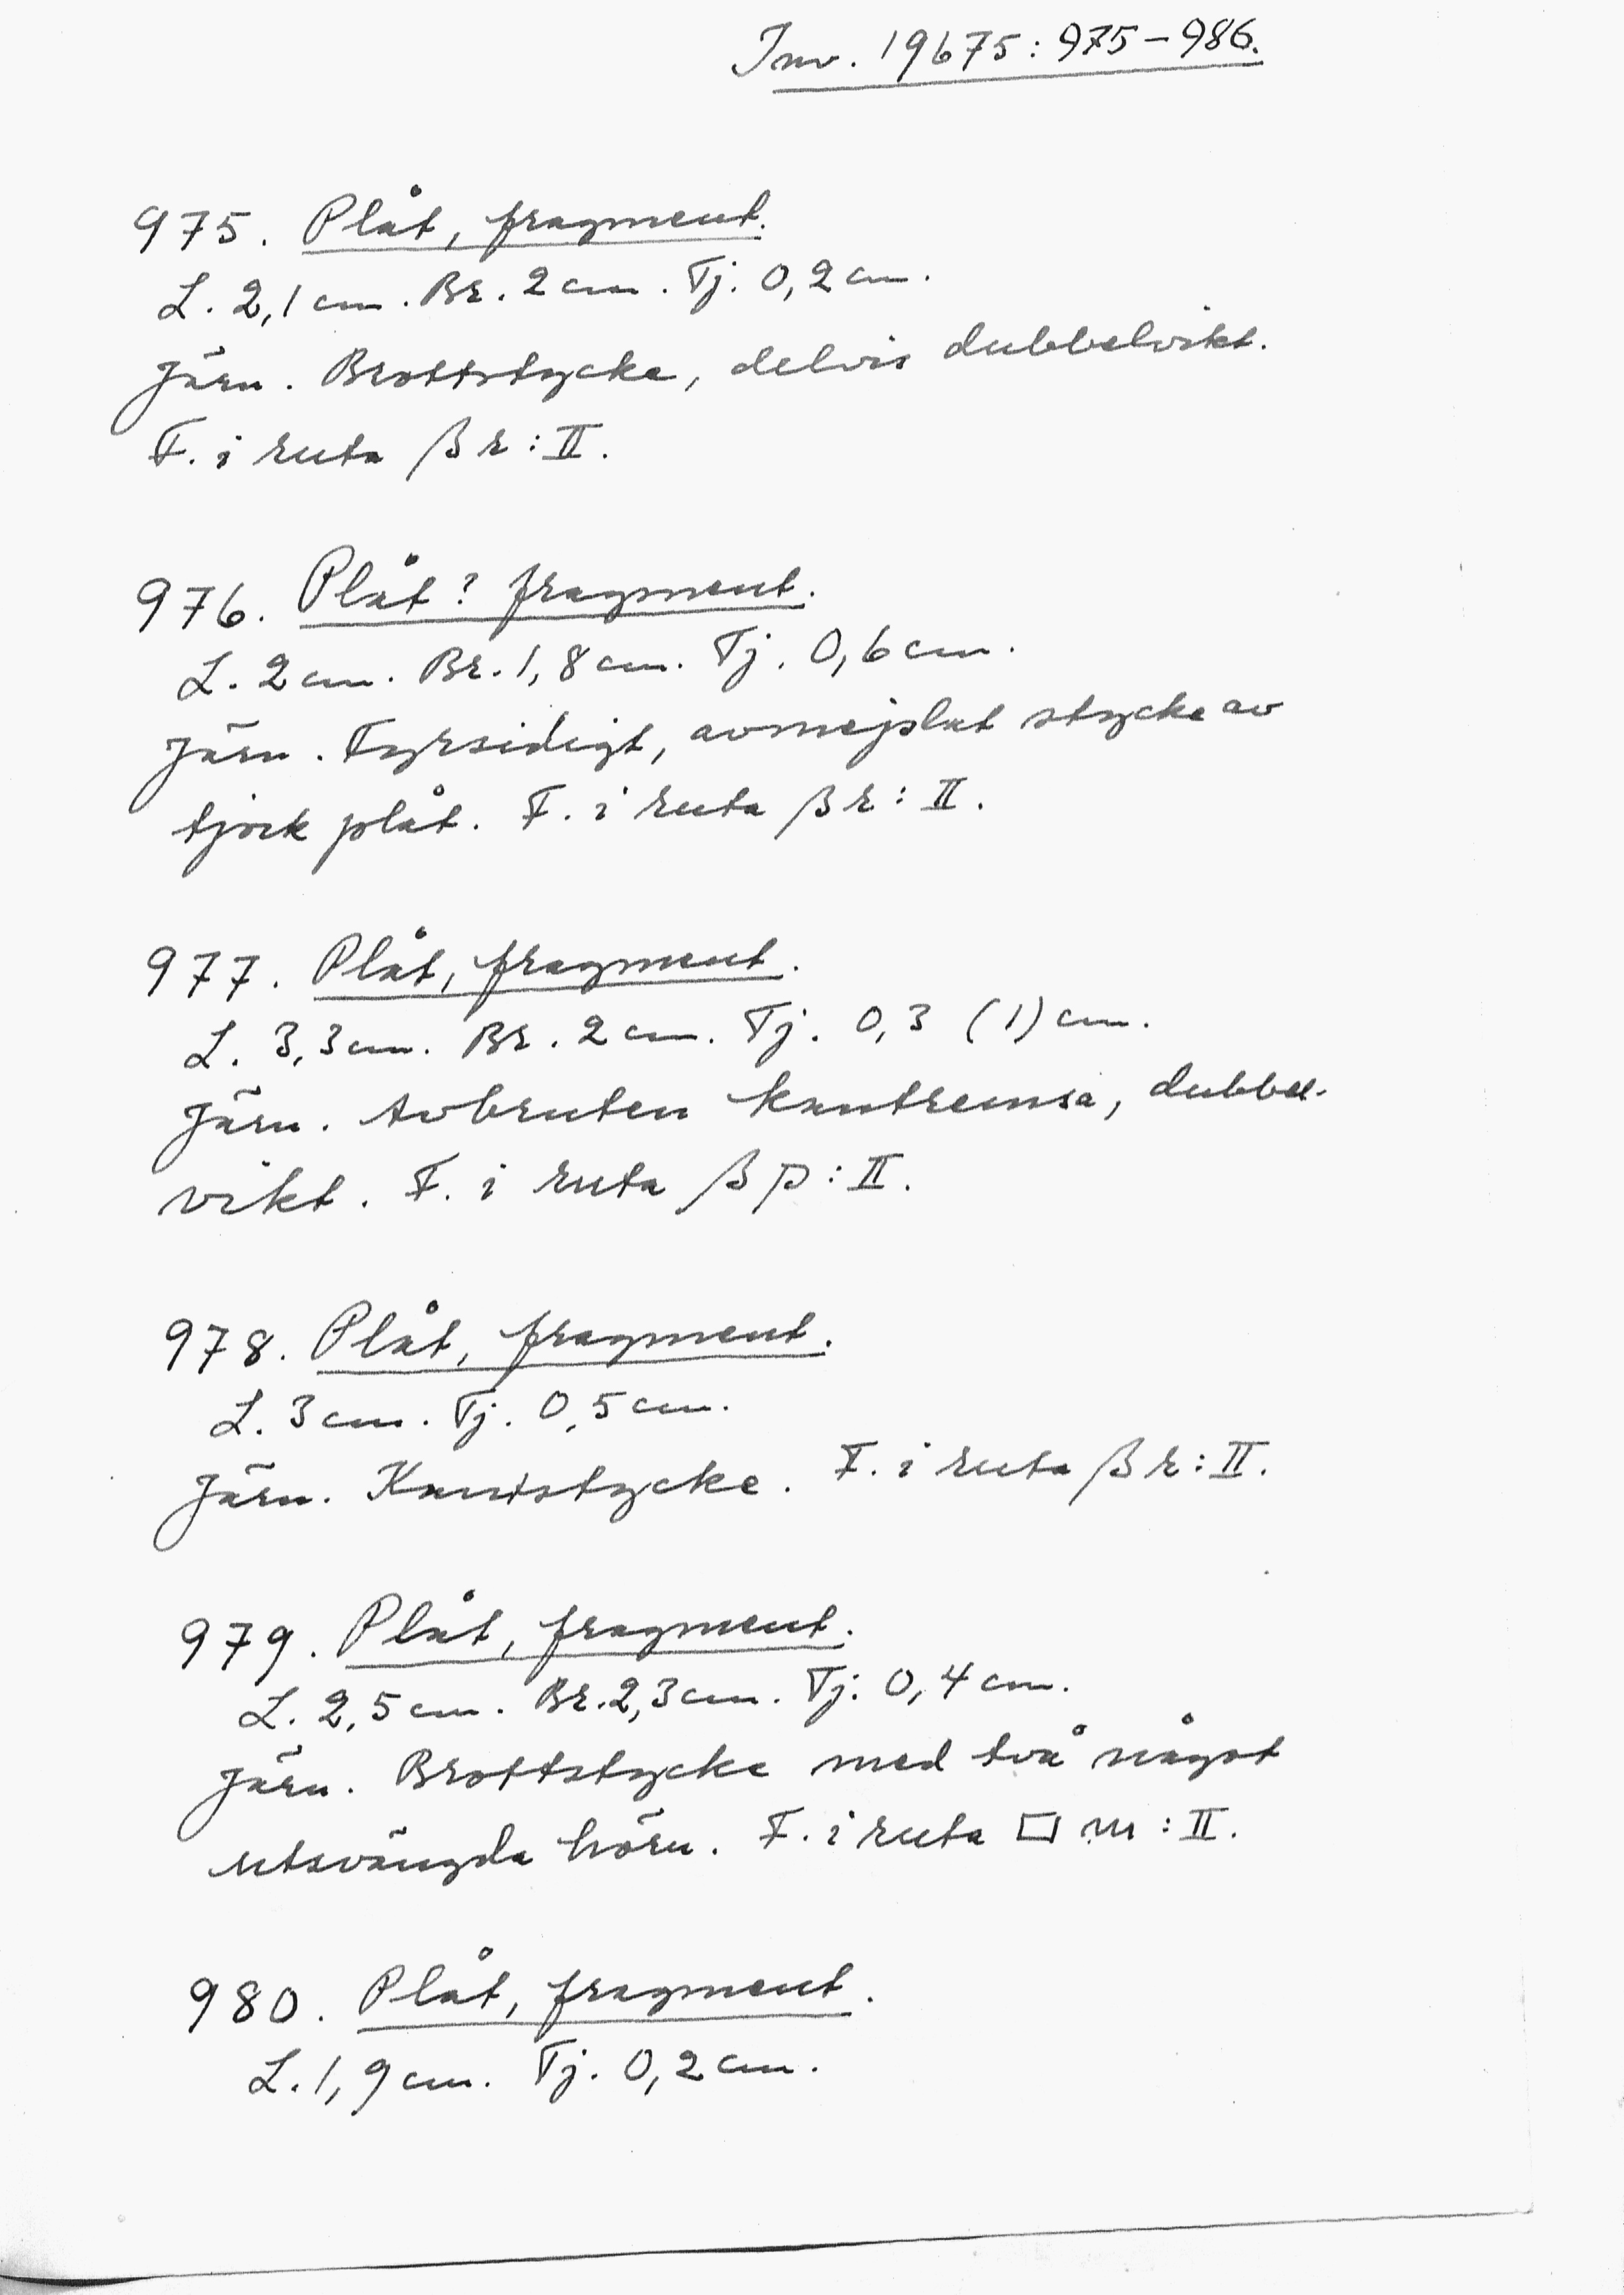 Inv. 19675: 975-986.
975. Plåt, fragment.
L. 2,1 cm. Br. 2 cm. Tj. 0,2 cm.
Järn. Brottstycke, delvis dubbelvikt.
F. i ruta βr: II.
976. Plåt? fragment.
L. 2 cm. Br. 1,8 cm. Tj. 0,6 cm.
Järn. Fyrsidigt, avmejslat stycke av
tjock plåt. F. i ruta βr: II.
977. Plåt, fragment.
L. 3,3 cm. Br. 2 cm. Tj. 0,3 (1) cm.
Järn. Avbruten kantremsa, dubbel-
vikt. F. i ruta βp: II.
978. Plåt, fragment.
L. 3 cm. Tj. 0,5 cm.
Järn. Kantstycke. F. i ruta βr: II.
979. Plåt, fragment.
L. 2,5 cm. Br. 2,3 cm. Tj. 0,4 cm.
Järn. Brottstycke med två något
utsvängda hörn. F. i ruta □ m: II.
980. Plåt, fragment.
L. 1,9 cm. Tj. 0,2 cm.